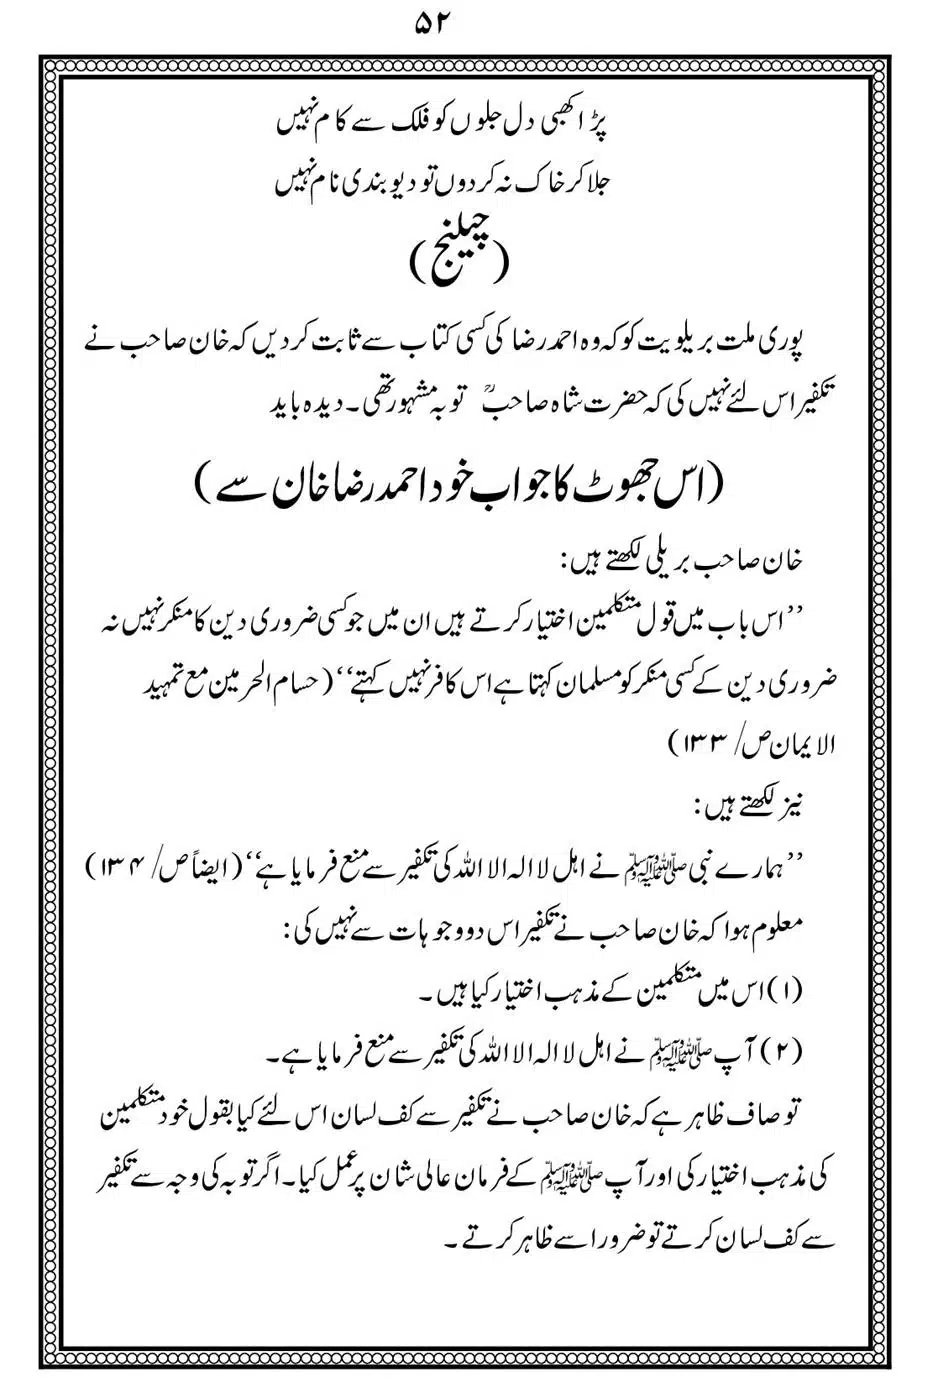 ۵۲
پڑا کبھی دل جلوں کو فلک سے کام نہیں
جلا کر خاک نہ کردوں تو دیوبندی نام نہیں
(چیلنج)
پوری ملت بریلویت کو کہ وہ احمد رضا کی کسی کتاب سے ثابت کردیں کہ خان صاحب نے
تکفیر اس لئے نہیں کی کہ حضرت شاہ صاحبؒ توبہ مشہور تھی۔ دیدہ باید
(اس جھوٹ کا جواب خود احمد رضا خان سے)
خان صاحب بریلی لکھتے ہیں:
’’اس باب میں قول متکلمین اختیار کرتے ہیں ان میں جو کسی ضروری دین کا منکر نہیں نہ
ضروری دین کے کسی منکر کو مسلمان کہتا ہے اس کافر نہیں کہتے‘‘ (حسام الحرمین مع تمہید
الایمان ص/ ۱۳۳)
نیز لکھتے ہیں:
’’ہمارے نبی ﷺ نے اہل لا الہ الا اللہ کی تکفیر سے منع فرمایا ہے‘‘ (ایضاً ص/ ۱۳۴)
معلوم ہوا کہ خان صاحب نے تکفیر اس دو وجوہات سے نہیں کی:
(۱) اس میں متکلمین کے مذہب اختیار کیا ہیں۔
(۲) آپ ﷺ نے اہل لا الہ الا اللہ کی تکفیر سے منع فرمایا ہے۔
تو صاف ظاہر ہے کہ خان صاحب نے تکفیر سے کف لسان اس لئے کیا بقول خود متکلمین
کی مذہب اختیار کی اور آپ ﷺ کے فرمان عالی شان پر عمل کیا۔ اگر توبہ کی وجہ سے تکفیر
سے کف لسان کرتے تو ضرور اسے ظاہر کرتے۔